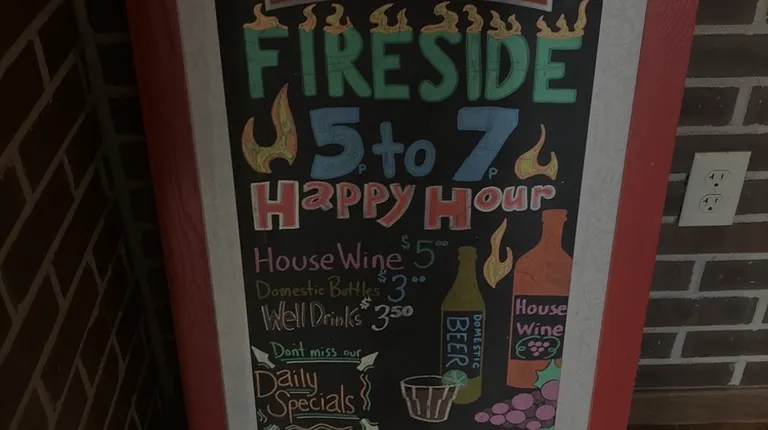 FIRESIDE
5P to 7P
Happy Hour
House Wine $5.00
Domestic Bottles $3.00
Well Drinks $3.50
Don't miss our
Daily
Specials
DOMESTIC
BEER
House
Wine